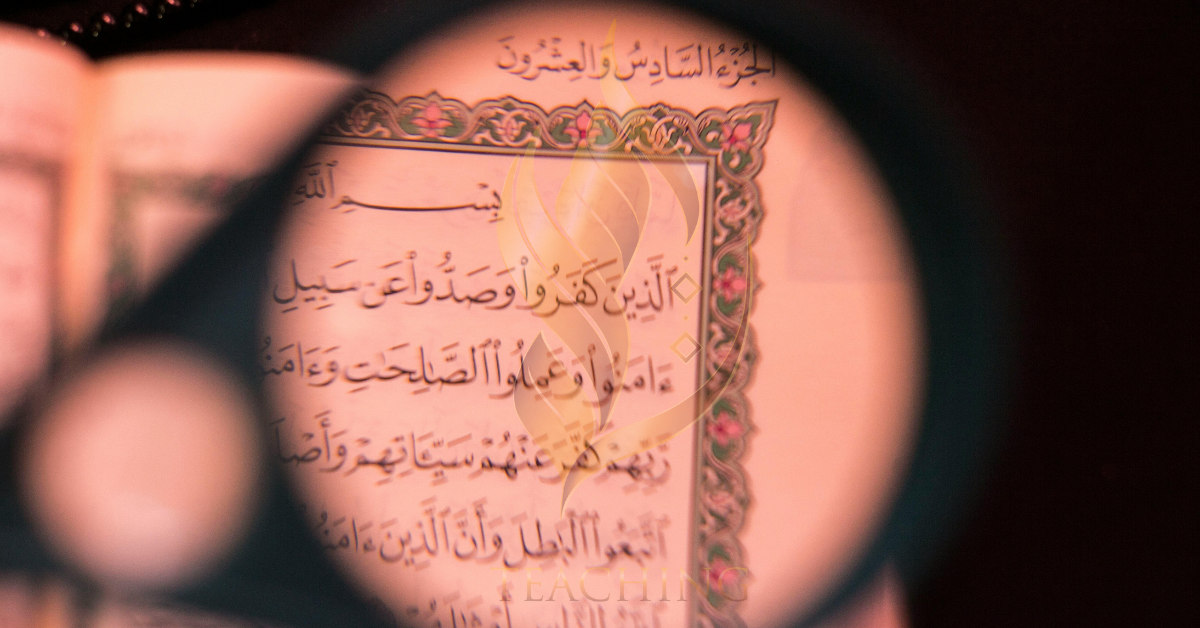 الجُزْءُ السَّادِسُ وَالعِشْرُونَ
بِسْمِ ٱللَّهِ
ٱلَّذِينَ كَفَرُوا۟ وَصَدُّوا۟ عَن سَبِيلِ
ءَامَنُوا۟ وَعَمِلُوا۟ ٱلصَّـٰلِحَـٰتِ
رَّبِّهِمْ كَفَّرَ عَنْهُمْ سَيِّـَٔاتِهِمْ
ٱتَّبَعُوا۟ ٱلْبَـٰطِلَ وَأَنَّ ٱلَّذِينَ
TEACHING